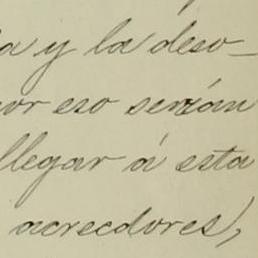 a y la deso-
por eso serían
llegar á esta
acreedores,